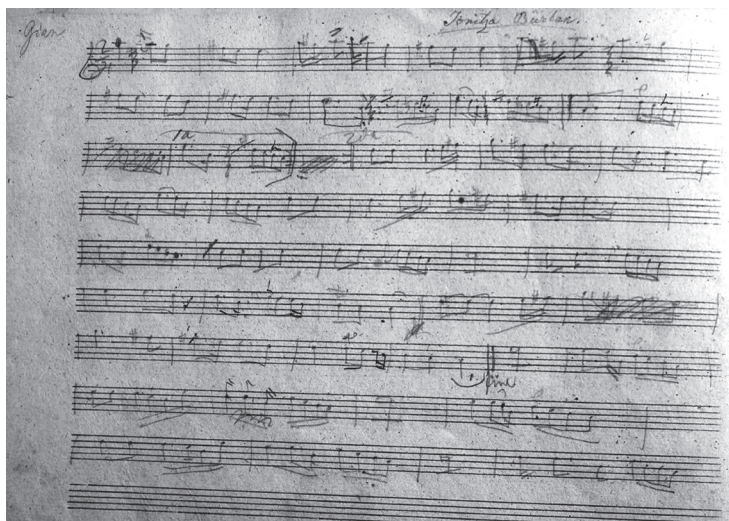 Gian
Ionitza Bùrlan.
1a
2da
fine